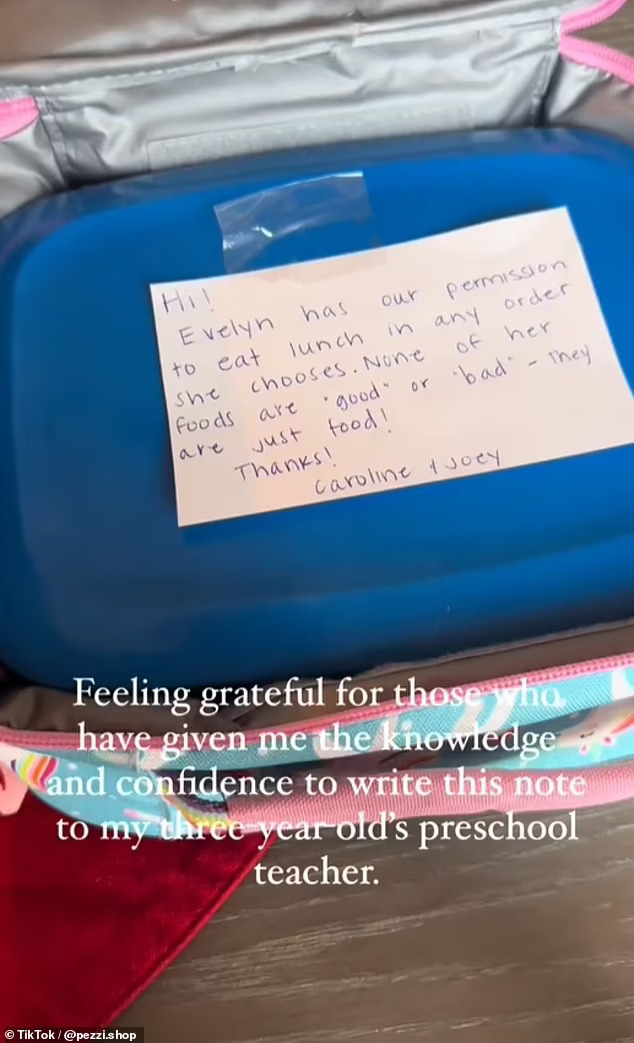 Hi!
Evelyn has our permission
to eat lunch in any order
she chooses. None of her
foods are "good" or "bad" - They
are just food!
Thanks!
Caroline + Joey
Feeling grateful for those who
have given me the knowledge
and confidence to write this note
to my three-year-old's preschool
teacher.
© TikTok / @pezzi.shop